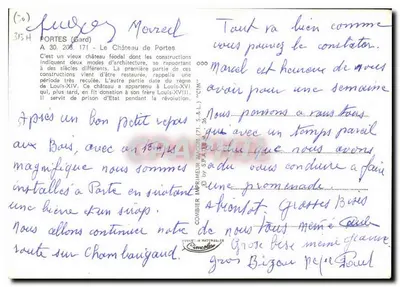 Marcel
PORTES (Gard)
A 30. 208. 171 - Le Château de Portes
C'est un vieux château féodal dont les constructions
indiquent deux modes d'architecture, se rapportant
à des siècles différents. La première partie de ces
constructions vient d'être restaurée, rappelle une
période très reculée. L'autre partie date du règne
de Louis-XIV. Ce château a appartenu à Louis-XVI
qui, plus tard, en fit donation à son frère Louis-XVIII.
Il servit de prison d'Etat pendant la révolution.
Après un bon petit repas
aux Bois, avec un temps
magnifique nous sommes
installés à Porte en sirotant
une bière et un sirop.
Nous allons continuer notre
route sur Chamborigaud.
Tout va bien comme
vous pouvez le constater.
Marcel est heureux de nous
avoir pour une semaine
Nous pensons à vous tous
que avec un temps pareil
que nous avons
du vous conduire à faire
une promenade.
à bientôt. Grosses Bises
de nous tous mémé
Grosse bise mémé Jeanne
gros Bizou papé Paul